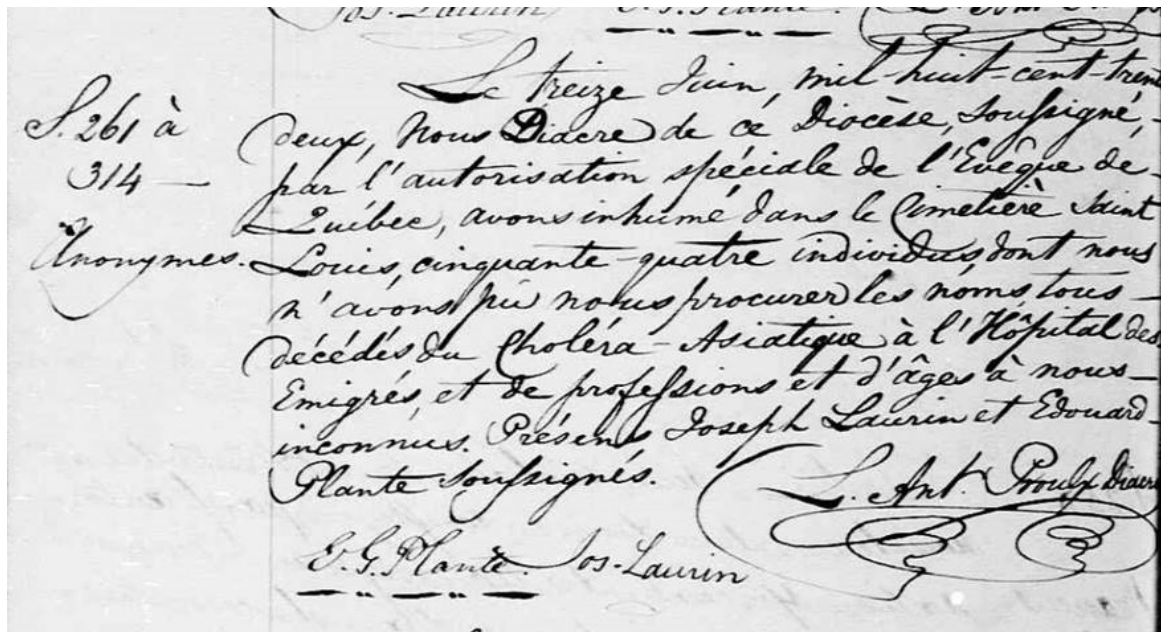 Jos. Laurin E. G. Plante.
Le treize Juin, mil-huit-cent-trente
S. 261 à
deux, Nous Diacre de ce Diocèse, soussigné, -
314 —
par l'autorisation spéciale de l'Evêque de -
Québec, avons inhumé dans le Cimetière Saint
Anonymes.
Louis, cinquante-quatre individus, dont nous
n'avons pu nous procurer les noms, tous -
décédés du Choléra-Asiatique à l'Hôpital des
Emigrés, et de professions et d'âges à nous -
inconnus. Présens Joseph Laurin et Edouard -
Plante soussignés.
L. Ant. Proulx Diacre
E. G. Plante. Jos. Laurin